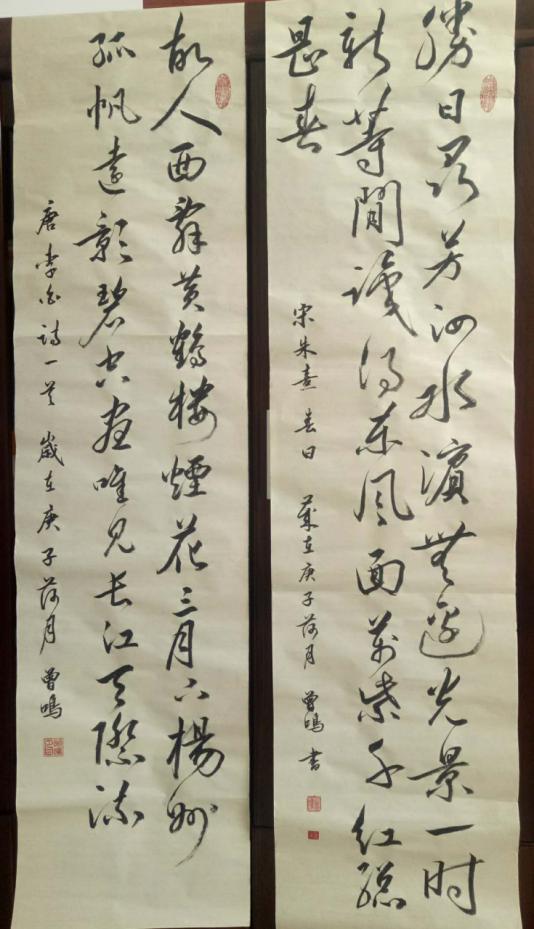 勝日尋芳泗水濱無邊光景一时
新等閒識得東風面萬紫千紅總
是春
宋朱熹 春日 歲在庚子荷月 曾鳴 書
故人西辭黄鶴樓煙花三月下楊州
孤帆遠影碧空盡唯见长江天際流
唐李白詩一首 歲在庚子荷月 曾鳴